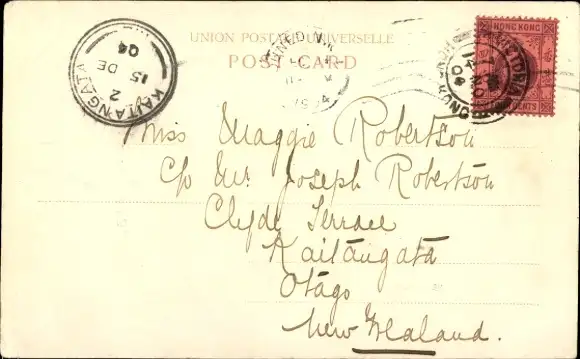 UNION POSTALE UNIVERSELLE
POST-CARD
HONG KONG
CENTS
VICTORIA
HONG KONG
KAITANGATA
2
15 DE
04
Miss Maggie Robertson
C/o Mr. Joseph Robertson
Clyde Terrace
Kaitangata
Otago
New Zealand.